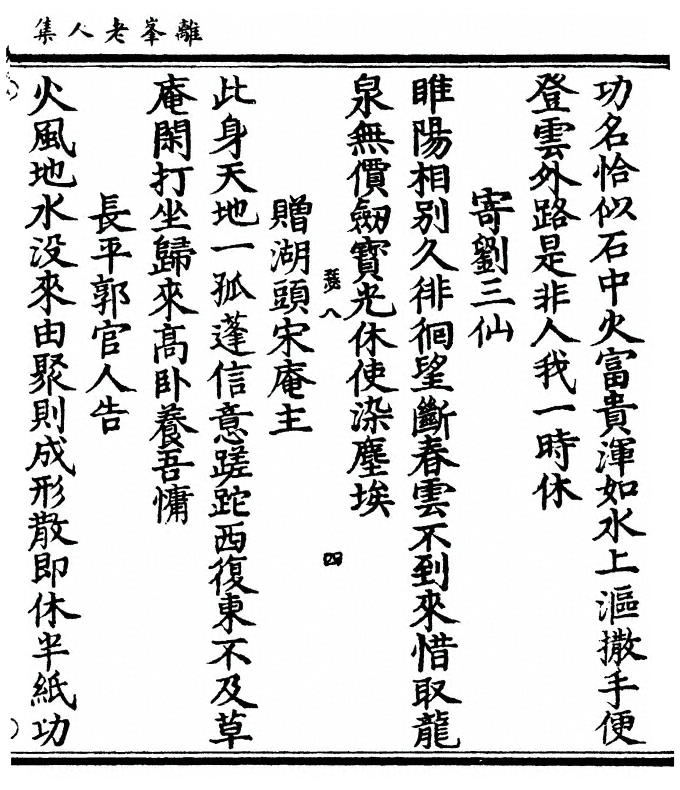 離峯老人集
功名恰似石中火富貴渾如水上漚撒手便
登雲外路是非人我一時休
寄劉三仙
睢陽相別久徘徊望斷春雲不到來惜取龍
泉無價劒寶光休使染塵埃
八
四
贈湖頭宋庵主
此身天地一孤蓬信意蹉跎西復東不及草
庵閑打坐歸來高卧養吾慵
長平郭官人告
火風地水没來由聚則成形散即休半紙功